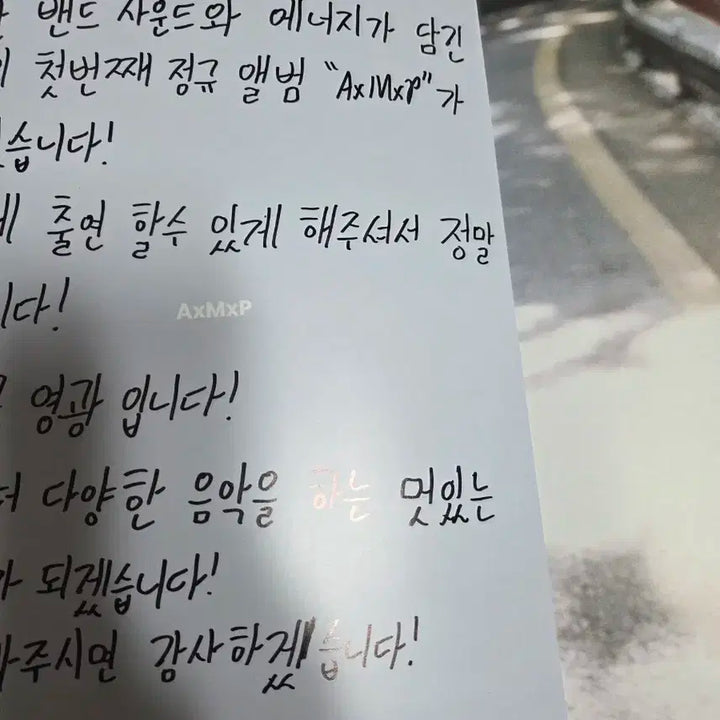 밴드 사운드와 에너지가 담긴
첫번째 정규 앨범 "AxMxP"가
습니다!
출연 할수 있게 해주셔서 정말
니다!
AxMxP
영광 입니다!
다양한 음악을 하는 멋있는
되겠습니다!
주시면 감사하겠습니다!